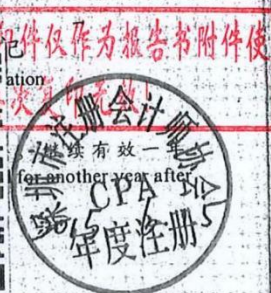 记
此件仅作为报告书附件使
ation
次复印无效
继续有效一
for another year after
深圳市注册会计师协会
CPA
年度注册